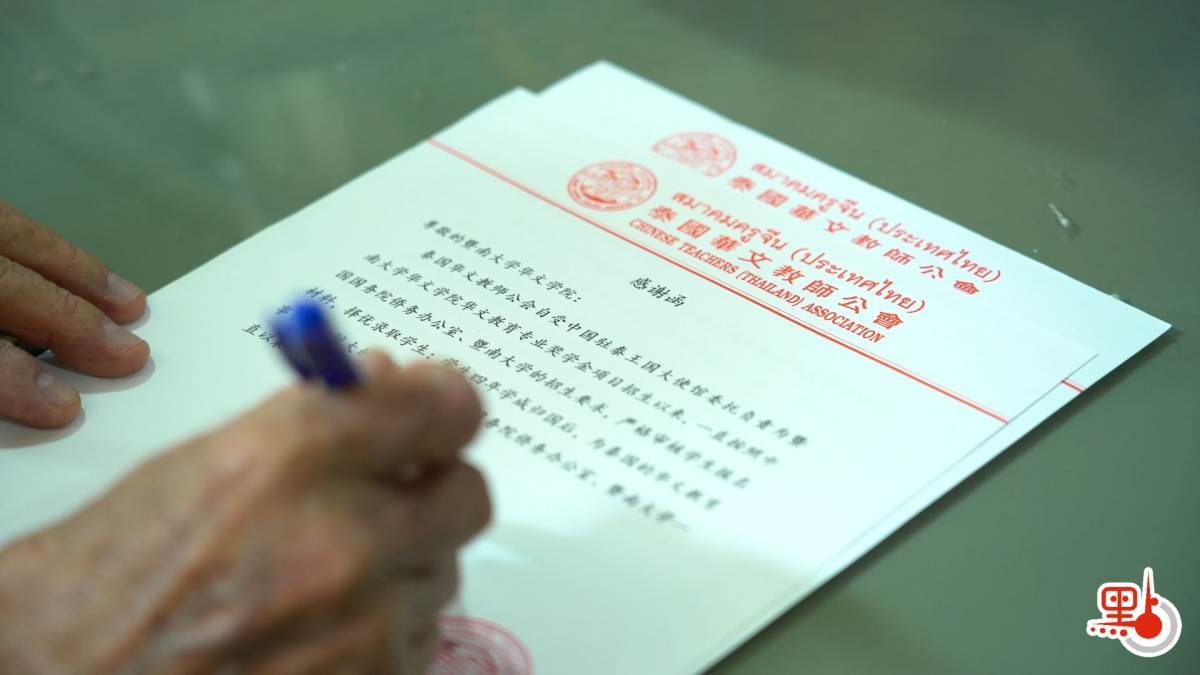 สมาคมครูจีน (ประเทศไทย)
泰國華文教師公會
สมาคมครูจีน (ประเทศไทย)
泰國華文教師公會
CHINESE TEACHERS (THAILAND) ASSOCIATION
感谢函
尊敬的暨南大学华文学院：
泰国华文教师公会自受中国驻泰王国大使馆委托负责为暨
南大学华文学院华文教育专业奖学金项目招生以来，一直按照中
国国务院侨务办公室、暨南大学的招生要求，严格审核学生报名
材料，择优录取学生；学生四年学成归国后，为泰国的华文教育
务院侨务办公室、暨南大学一
直以